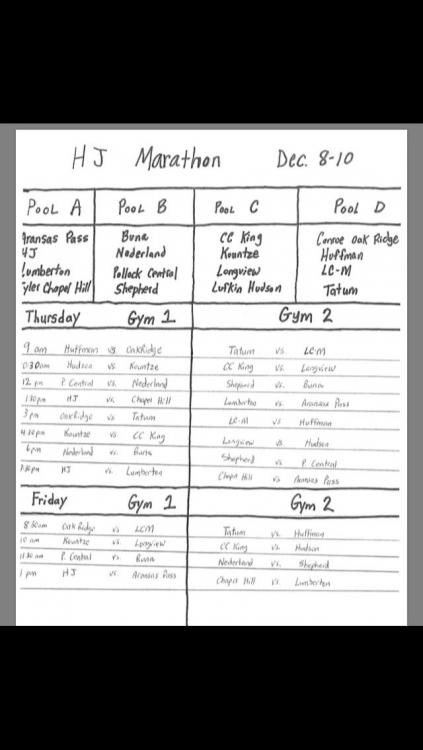 HJ Marathon Dec. 8-10
Pool A Pool B Pool C Pool D
Aransas Pass Buna CC King Conroe Oak Ridge
HJ Nederland Kountze Huffman
Lumberton Pollock Central Longview LC-M
Tyler Chapel Hill Shepherd Lufkin Hudson Tatum
Thursday Gym 1 Gym 2
9 am Huffman vs. Oak Ridge Tatum vs LCM
0:30am Hudson vs Kountze CC King vs Longview
12 pm P. Central vs. Nederland Shepherd vs. Buna
1:30pm HJ vs. Chapel Hill Lumberton vs. Aransas Pass
3 pm Oak Ridge vs Tatum LC-M vs Huffman
4:30pm Kountze vs CC King Longview vs Hudson
6pm Nederland vs. Buna Shepherd vs. P. Central
7:30pm HJ vs. Lumberton Chapel Hill vs Aransas Pass
Friday Gym 1 Gym 2
8:30am Oak Ridge vs LCM Tatum vs. Huffman
10 am Kountze vs. Longview CC King vs Hudson
11:30 am P. Central vs. Buna Nederland vs. Shepherd
1 pm HJ vs. Aransas Pass Chapel Hill vs. Lumberton